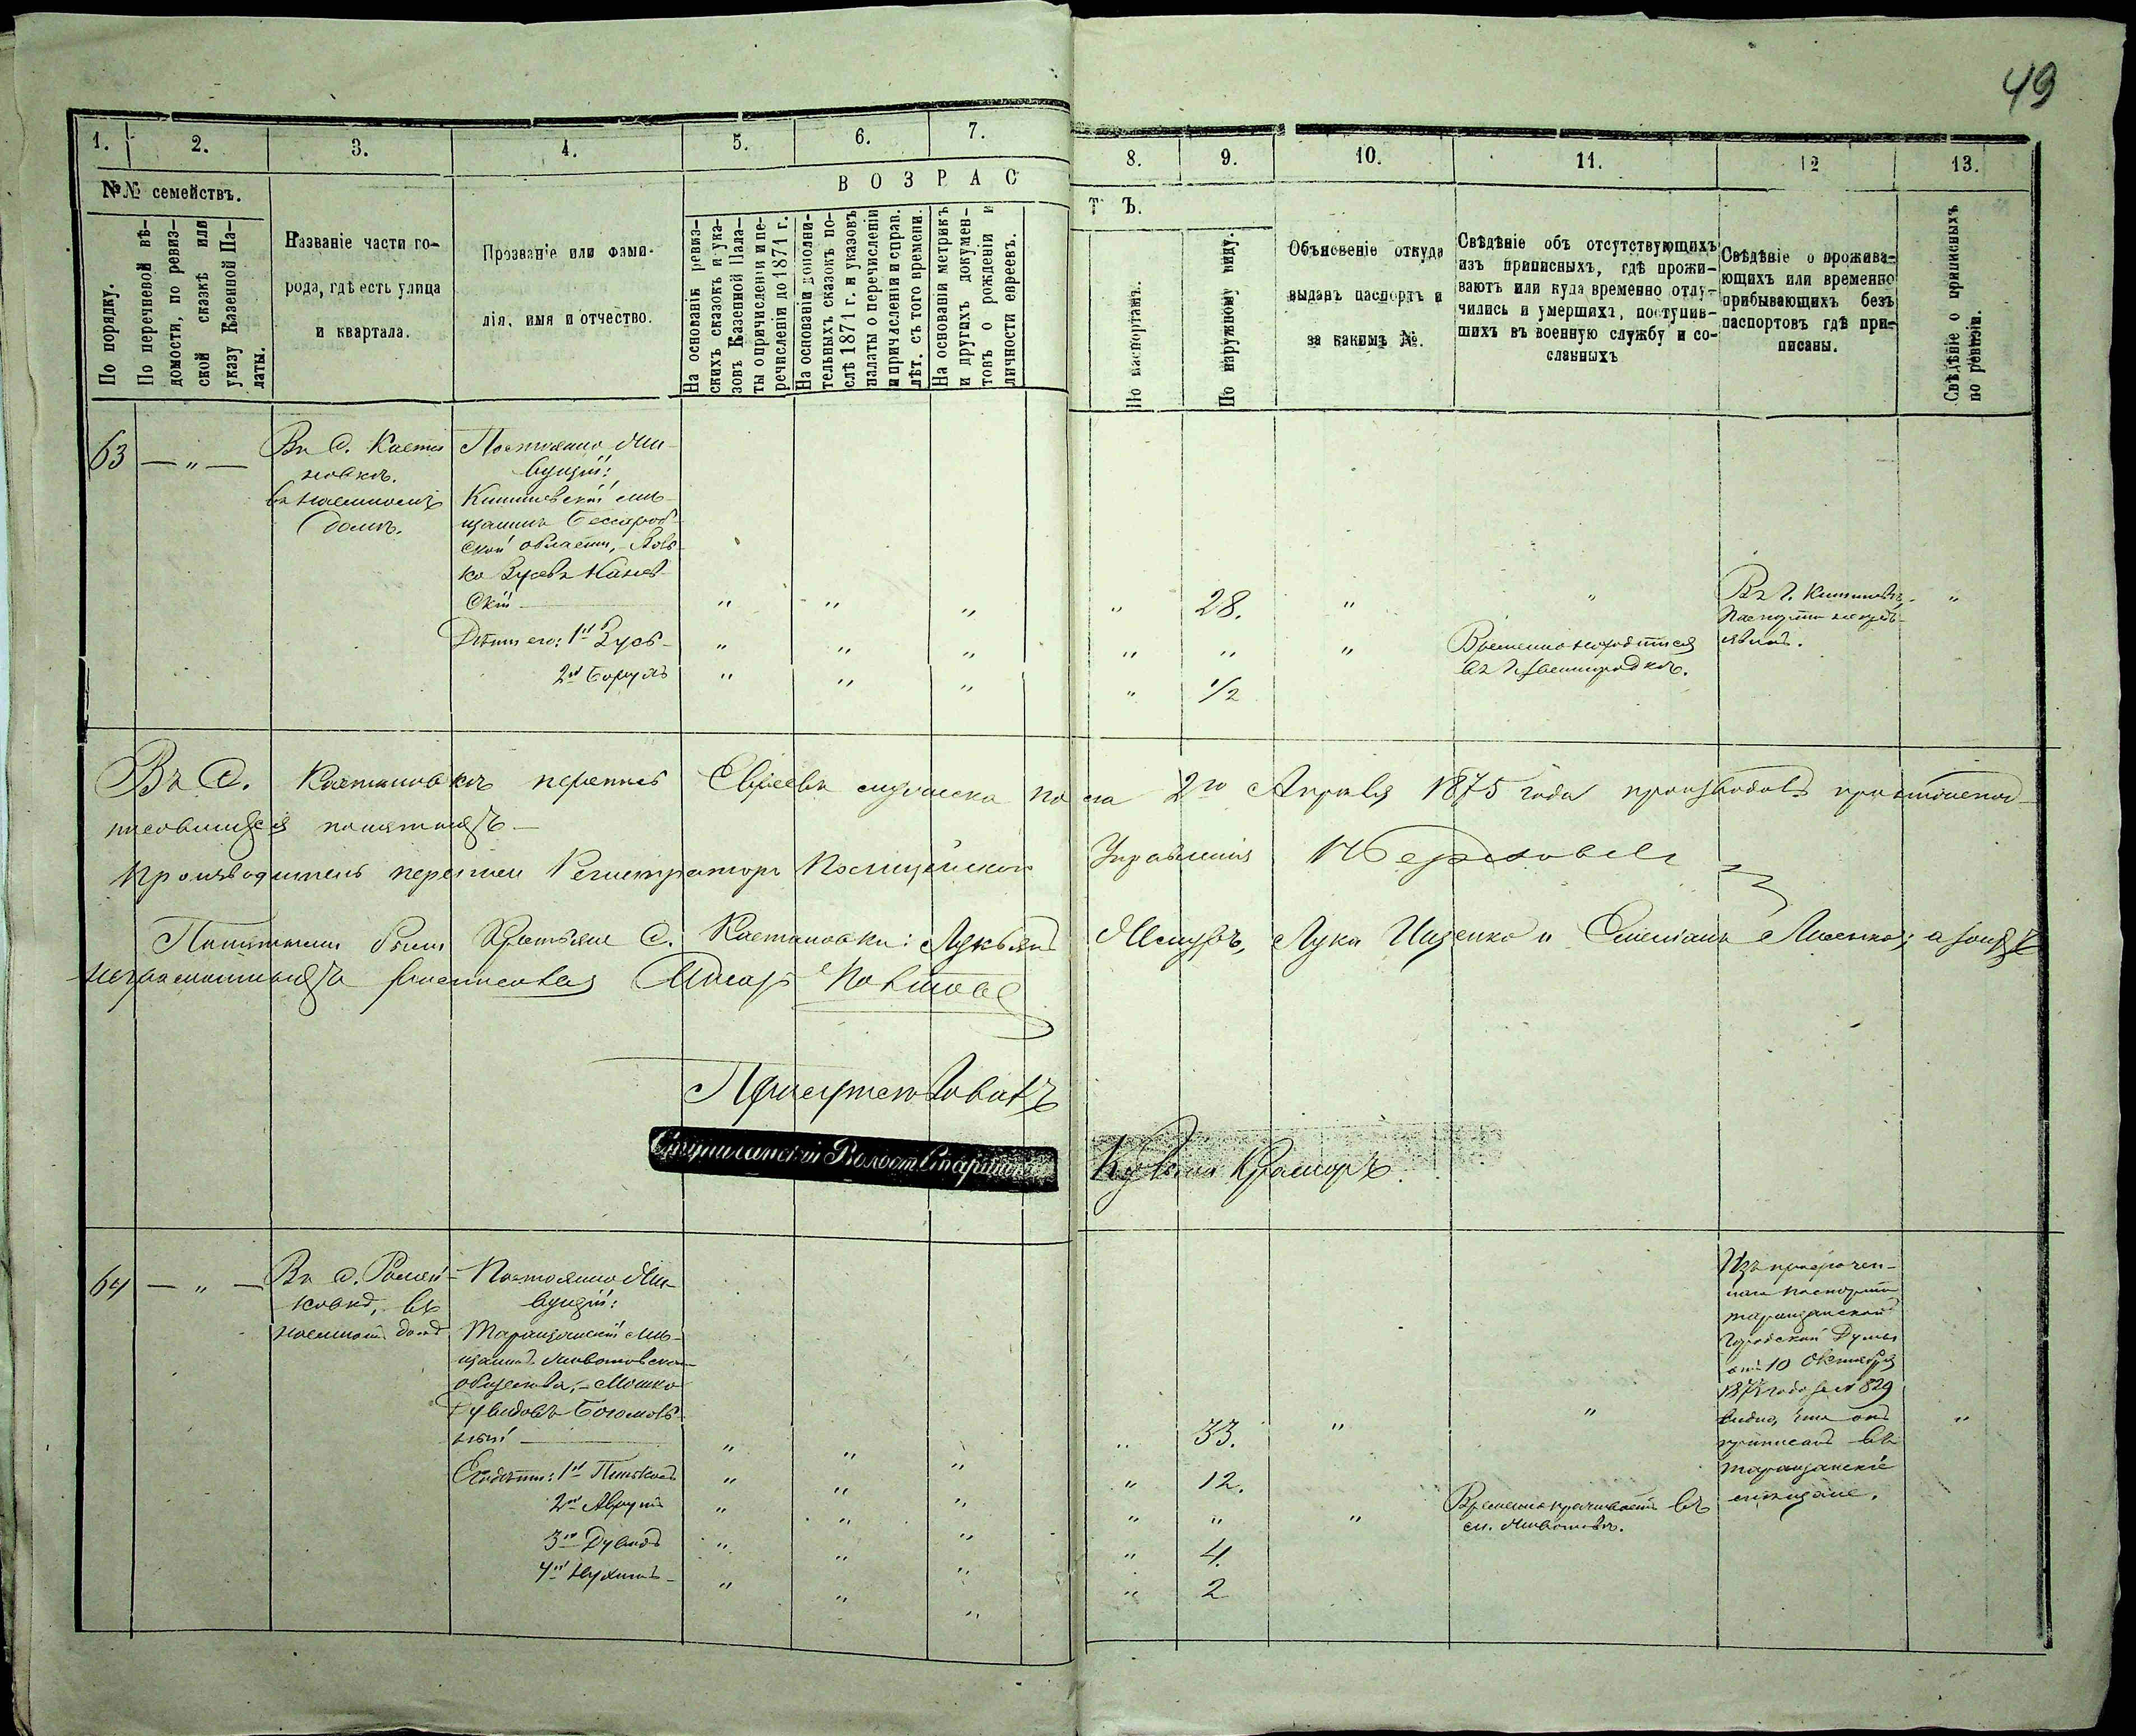 49
1. 2. 3. 4. 5. 6. 7. 8. 9. 10. 11. 12 13.
№№ семействъ.
По порядку.
По перечневой вѣ-
домости, по ревиз-
ской сказкѣ или
указу Казенной Па-
латы.
Названіе части го-
рода, гдѣ есть улица
и квартала.
Прозваніе или фами-
лія, имя и отчество.
ВОЗРАС
ТЪ.
На основаніи ревиз-
скихъ сказокъ и ука-
зовъ Казенной Пала-
ты о причисленіи и пе-
речисленіи до 1871 г.
На основаніи дополни-
тельныхъ сказокъ по-
слѣ 1871 г. и указовъ
палаты о перечисленіи
и причисленіи и справ.
лѣт. съ того времени.
На основаніи метрикъ
и другихъ докумен-
товъ о рожденіи и
личности евреевъ.
По паспортамъ.
По наружному виду.
Объясненіе откуда
выданъ паспортъ и
за какимъ №.
Свѣдѣніе объ отсутствующихъ
изъ приписныхъ, гдѣ прожи-
ваютъ или куда временно отлу-
чились и умершихъ, поступив-
шихъ въ военную службу и со-
сланныхъ
Свѣдѣніе о прожива-
ющихъ или временно
прибывающихъ безъ
паспортовъ гдѣ при-
писаны.
Свѣдѣніе о приписныхъ
по ревизіи.
63 — " —
Въ С. Каста
новкѣ.
въ наемномъ
домѣ.
Постоянно жи-
вущій:
Кишиневскій мѣ-
щанинъ Бессараб-
ской области,
ко Зусевъ Канев-
скій — " " " " 28. " " "
Въ Г. Кишиневѣ,
паспорта непредъ-
явилъ.
Дѣти его: 1й Зусь - " " " " " "
Временно находится
въ Г. Звенигородкѣ.
2й Борухъ " " " " 1/2
Въ С. Кастановкѣ перепись Евреевъ мужеска пола 2го Апрѣля 1875 года производов
понятыхъ —
Производитель переписи Регистраторъ Полицейскаго Управленія
Понятыми были Крестьяне С. Кастановки: Лукьянъ Лука Ищенко и а за нихъ
неграмотныхъ Писарь
Присутствовалъ
Волост Старшина
Краморъ.
64 — " —
Въ с. Ромей-
ковкѣ, въ
наемномъ домѣ
Постоянно жи-
вущій:
Таращанскій мѣ-
щанинъ Животовскаго
общества, - Мошко
Дувидовъ Богомоль-
ный — " " " " 33. " " "
Изъ просрочен-
наго паспорта
таращанской
Городской Думы
отъ 10 Октября
года за № 829
видно, что онъ
приписанъ въ
таращанскіе
мѣщане.
Его дѣти: 1й " " " " 12.
2й Аврумъ " " " " " "
Временно проживаетъ въ
м. Животовѣ.
3й Дувидъ " " " " 4.
4й Нухимъ - " " " " 2